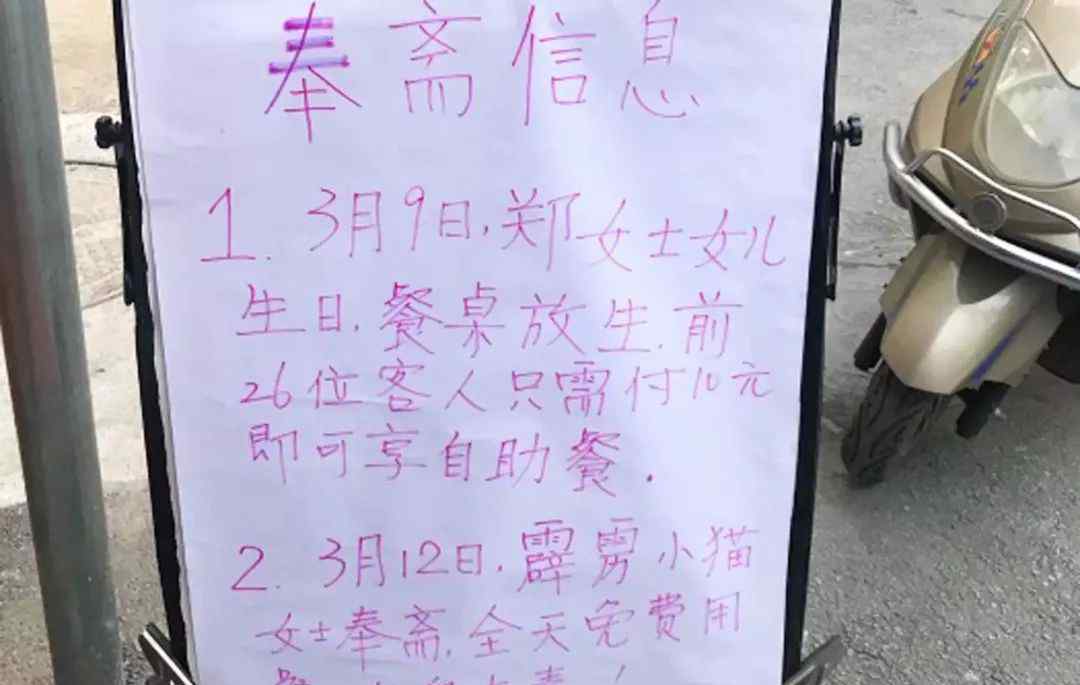 奉斋信息
1. 3月9日,郑女士女儿
生日.餐桌放生.前
26位客人只需付10元
即可享自助餐.
2. 3月12日,霹雳小猫
女士奉斋.全天免费用